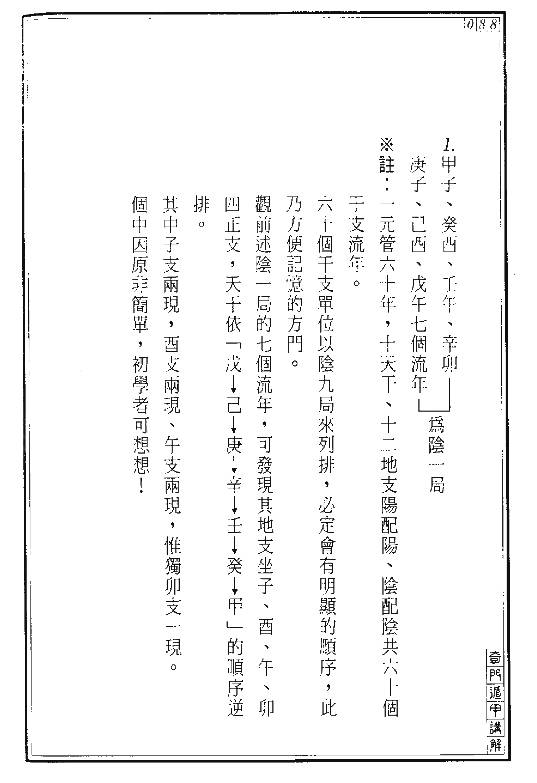 088
1.甲子、癸酉、壬午、辛卯
庚子、己酉、戊午七個流年
為陰一局
※註：一元管六十年，十天干、十二地支陽配陽、陰配陰共六十個
干支流年。
六十個干支單位以陰九局來列排，必定會有明顯的順序，此
乃方便記憶的方門。
觀前述陰一局的七個流年，可發現其地支坐子、酉、午、卯
四正支，天干依「戊→己→庚→辛→壬→癸→甲」的順序逆
排。
其中子支兩現，酉支兩現、午支兩現，惟獨卯支一現。
個中因原非簡單，初學者可想想！
奇門遁甲講解